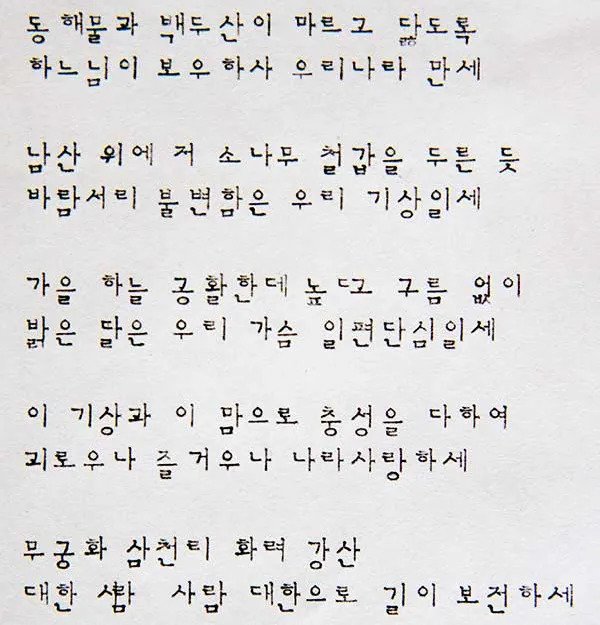 동해물과 백두산이 마르고 닳도록
하느님이 보우하사 우리나라 만세
남산 위에 저 소나무 철갑을 두른 듯
바람서리 불변함은 우리 기상일세
가을 하늘 공활한데 높고 구름 없이
밝은 달은 우리 가슴 일편단심일세
이 기상과 이 맘으로 충성을 다하여
괴로우나 즐거우나 나라사랑하세
무궁화 삼천리 화려 강산
대한 사람 사람 대한으로 길이 보전하세